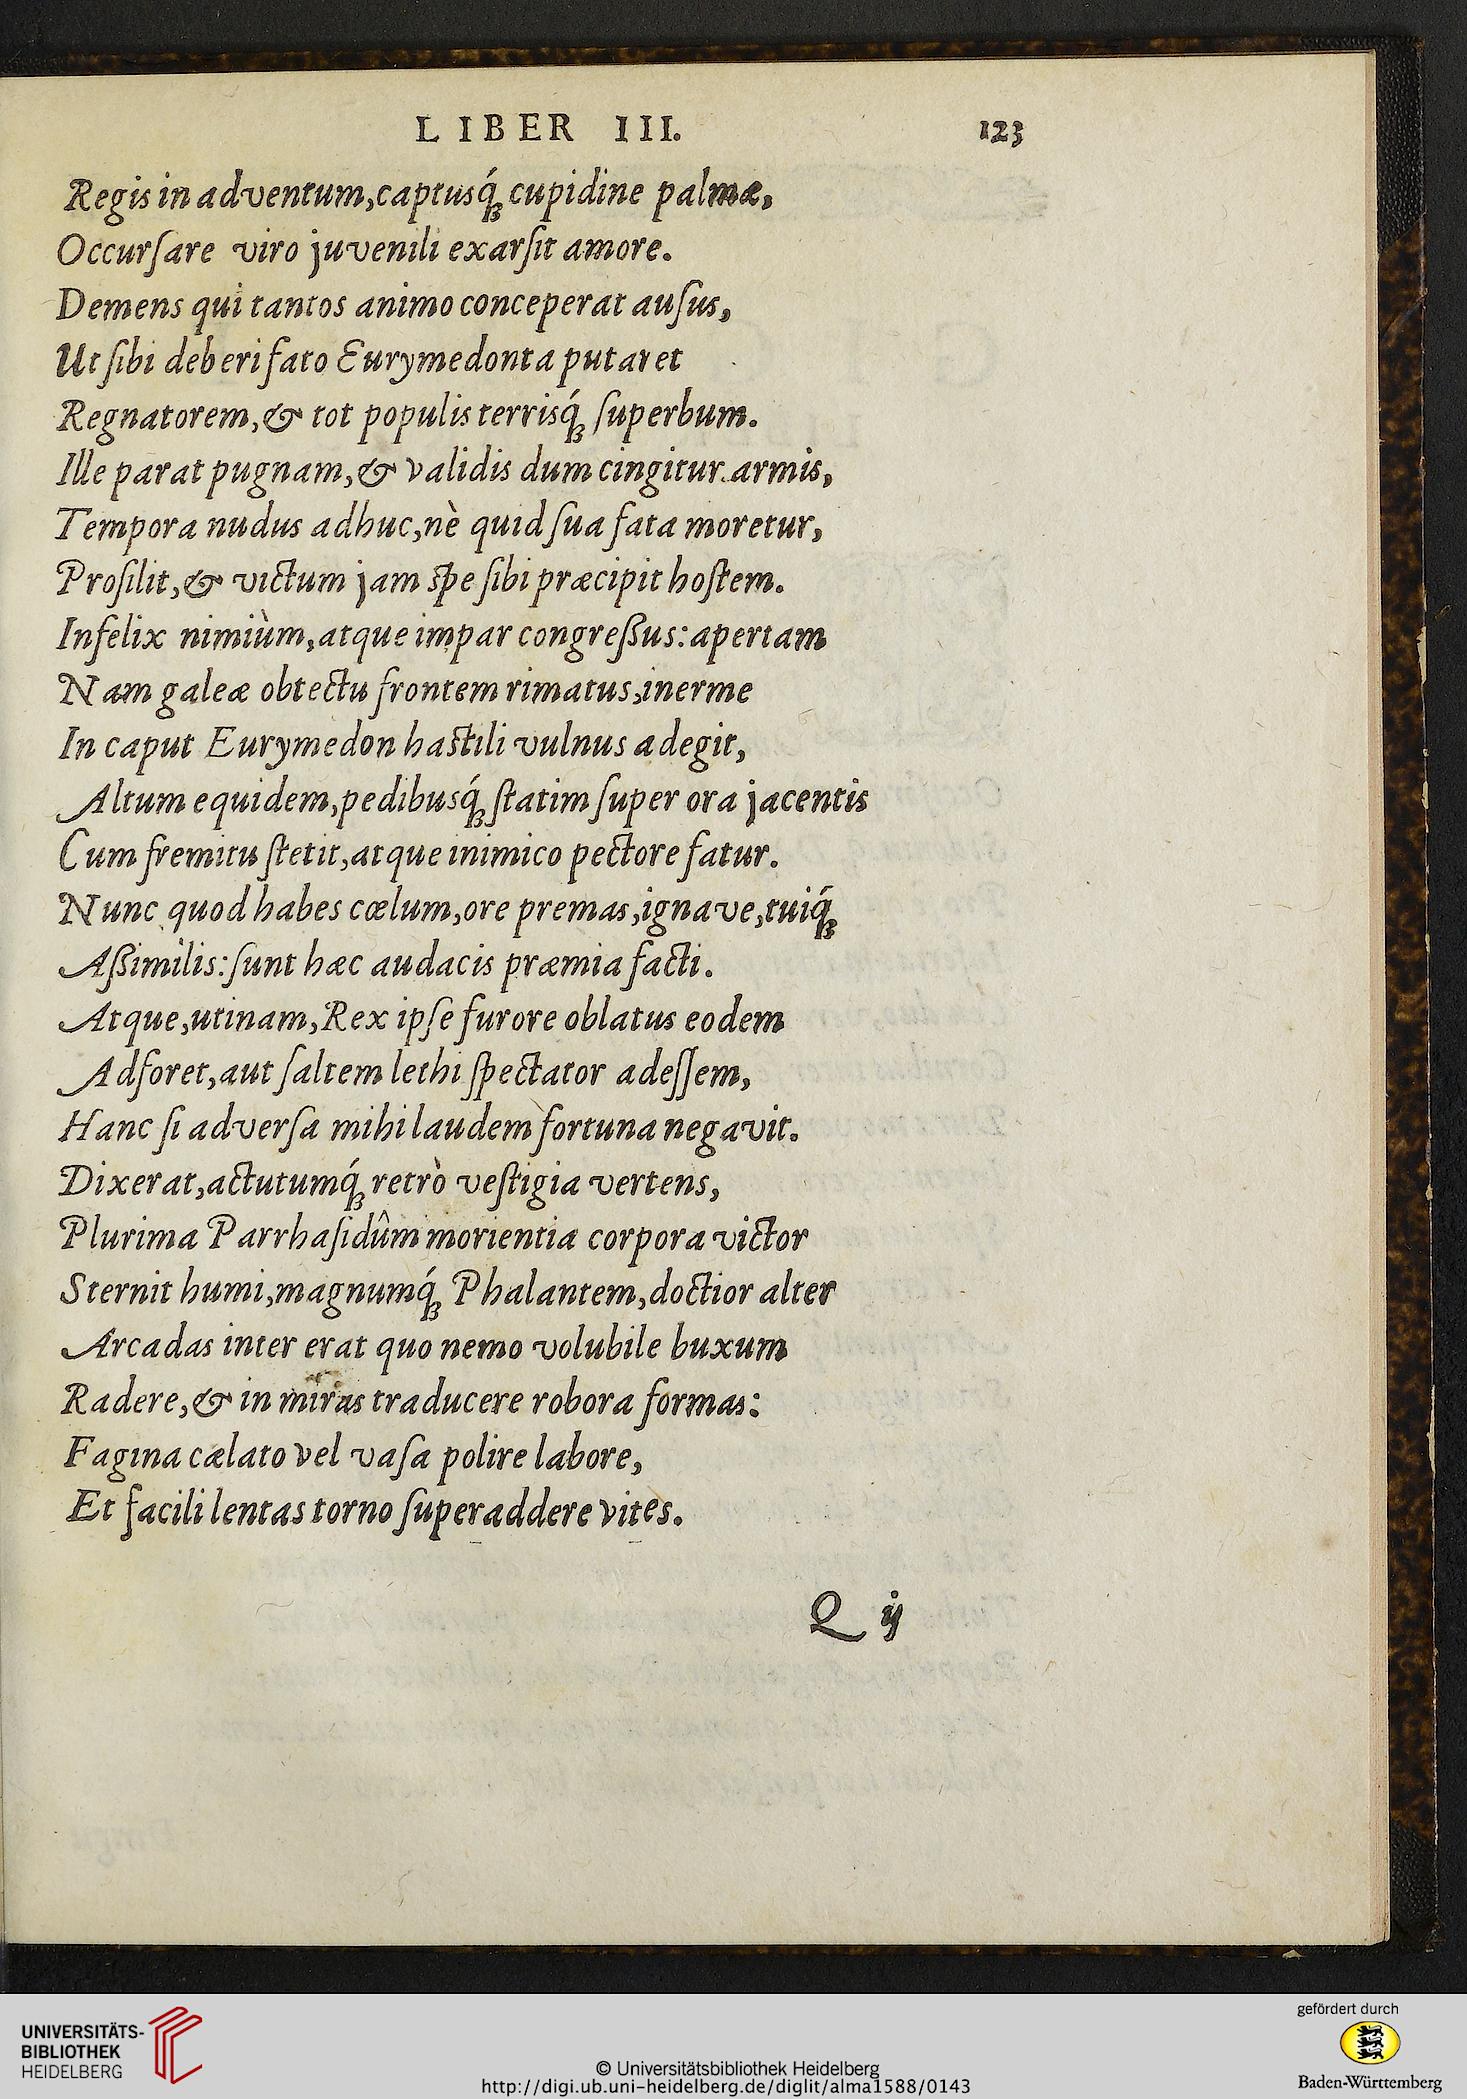 LIBER III. 123
Regis in adventum, captusq́ꝫ cupidine palmæ,
Occurſare viro juvenili exarſit amore.
Demens qui tantos animo conceperat auſus,
Ut ſibi deberi fato Eurymedonta putaret
Regnatorem, & tot populis terrisq́ꝫ ſuperbum.
Ille parat pugnam, & validis dum cingitur armis,
Tempora nudus adhuc, nè quid ſua fata moretur,
Proſilit, & victum jam ſpe ſibi præcipit hoſtem.
Infelix nimiùm, atque impar congreſsus: apertam
Nam galeæ obtectu frontem rimatus, inerme
In caput Eurymedon haſtili vulnus adegit,
Altum equidem, pedibusq́ꝫ ſtatim ſuper ora jacentis
Cum fremitu ſtetit, atque inimico pectore fatur.
Nunc quod habes cœlum, ore premas, ignave, tuiq́ꝫ
Aſsimilis: ſunt hæc audacis præmia facti.
Atque, utinam, Rex ipſe furore oblatus eodem
Adforet, aut ſaltem lethi ſpectator adeſſem,
Hanc ſi adverſa mihi laudem fortuna negavit.
Dixerat, actutumq́ꝫ retrò veſtigia vertens,
Plurima Parrhaſidûm morientia corpora victor
Sternit humi, magnumq́ꝫ Phalantem, doctior alter
Arcadas inter erat quo nemo volubile buxum
Radere, & in miras traducere robora formas:
Fagina cælato vel vaſa polire labore,
Et facili lentas torno ſuperaddere vites.
Q ij
UNIVERSITÄTS-
BIBLIOTHEK
HEIDELBERG
© Universitätsbibliothek Heidelberg
http://digi.ub.uni-heidelberg.de/diglit/alma1588/0143
gefördert durch
Baden-Württemberg